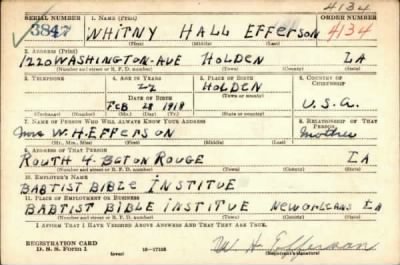 4134
SERIAL NUMBER 1. NAME (Print) ORDER NUMBER
3847 WHITNY HALL EFFERSON 4134
(First) (Middle) (Last)
2. ADDRESS (Print)
1220 WASHINGTON-AVE HOLDEN LA
(Number and street or R. F. D. number) (Town) (County) (State)
3. TELEPHONE 4. AGE IN YEARS 5. PLACE OF BIRTH 6. COUNTRY OF CITIZENSHIP
22 HOLDEN
DATE OF BIRTH (Town or county)
FEB 28 1918 U.S.A.
(Exchange) (Number) (Mo.) (Day) (Yr.) (State or country)
7. NAME OF PERSON WHO WILL ALWAYS KNOW YOUR ADDRESS 8. RELATIONSHIP OF THAT PERSON
Mrs W.H. EFFERSON Mother
(Mr., Mrs., Miss) (First) (Middle) (Last)
9. ADDRESS OF THAT PERSON
ROUTH 4. BATON ROUGE LA
(Number and street or R. F. D. number) (Town) (County) (State)
10. EMPLOYER'S NAME
BABTIST BIBLE INSTITVE
11. PLACE OF EMPLOYMENT OR BUSINESS
BABTIST BIBLE INSTITVE NEW ORLEANS LA
(Number and street or R. F. D. number) (Town) (County) (State)
I AFFIRM THAT I HAVE VERIFIED ABOVE ANSWERS AND THAT THEY ARE TRUE.
REGISTRATION CARD
D. S. S. Form 1 (over) 16-17105 W H Efferson
(Registrant's signature)